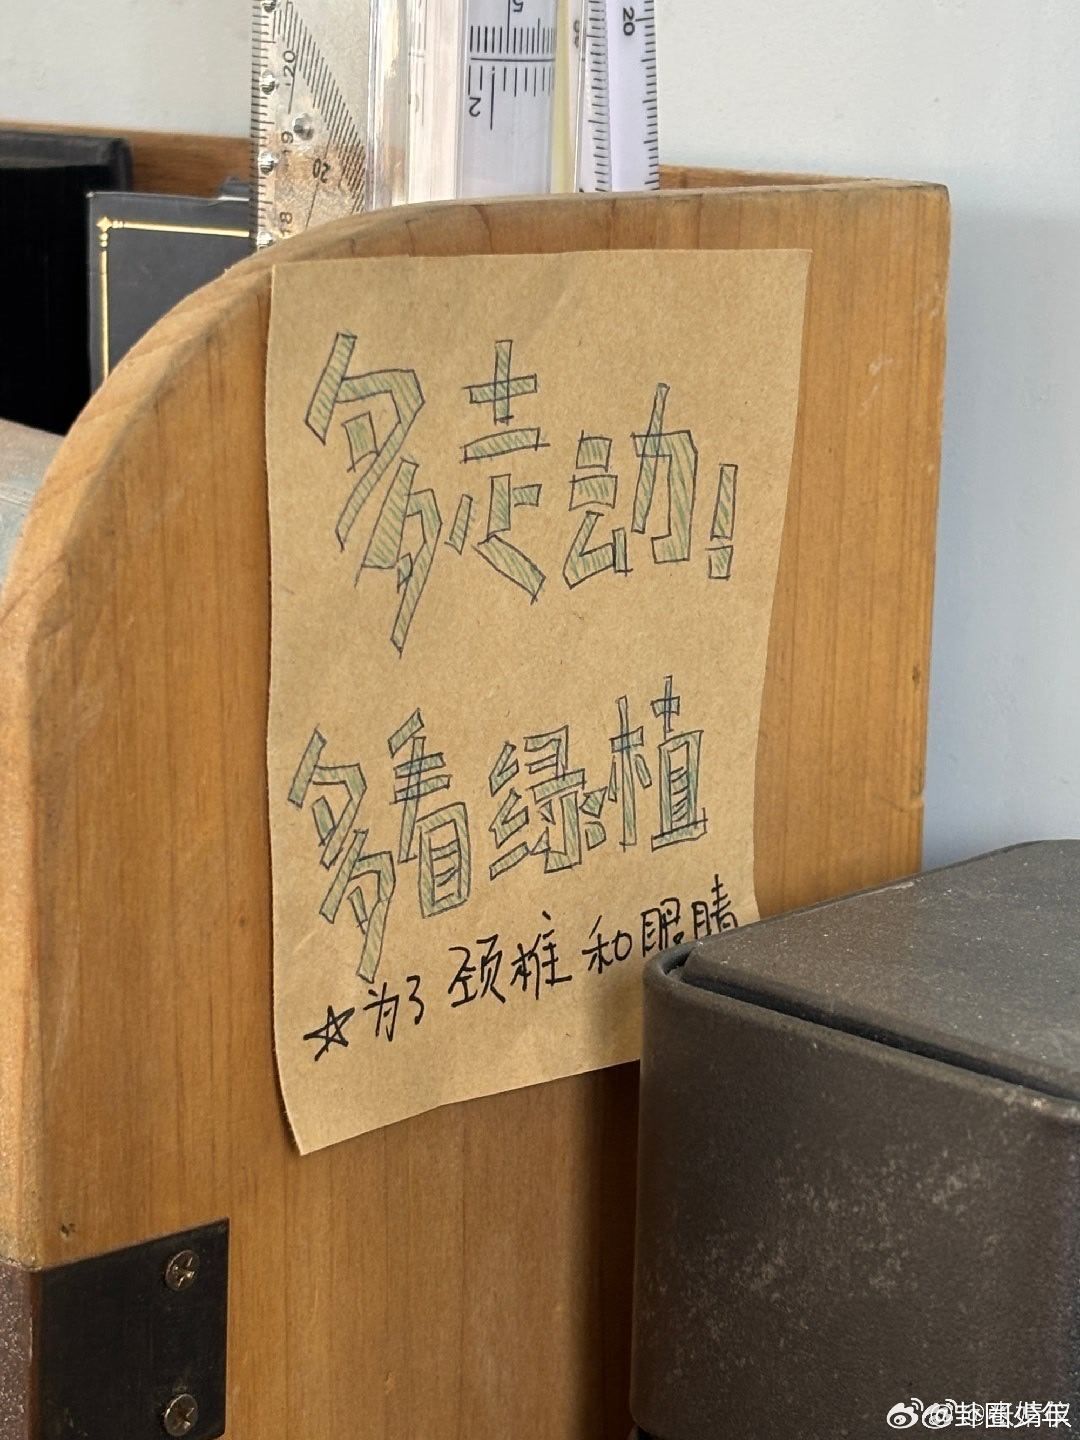 20
19
18
20
5
2
20
多走动!
多看绿植
☆为了颈椎和眼睛